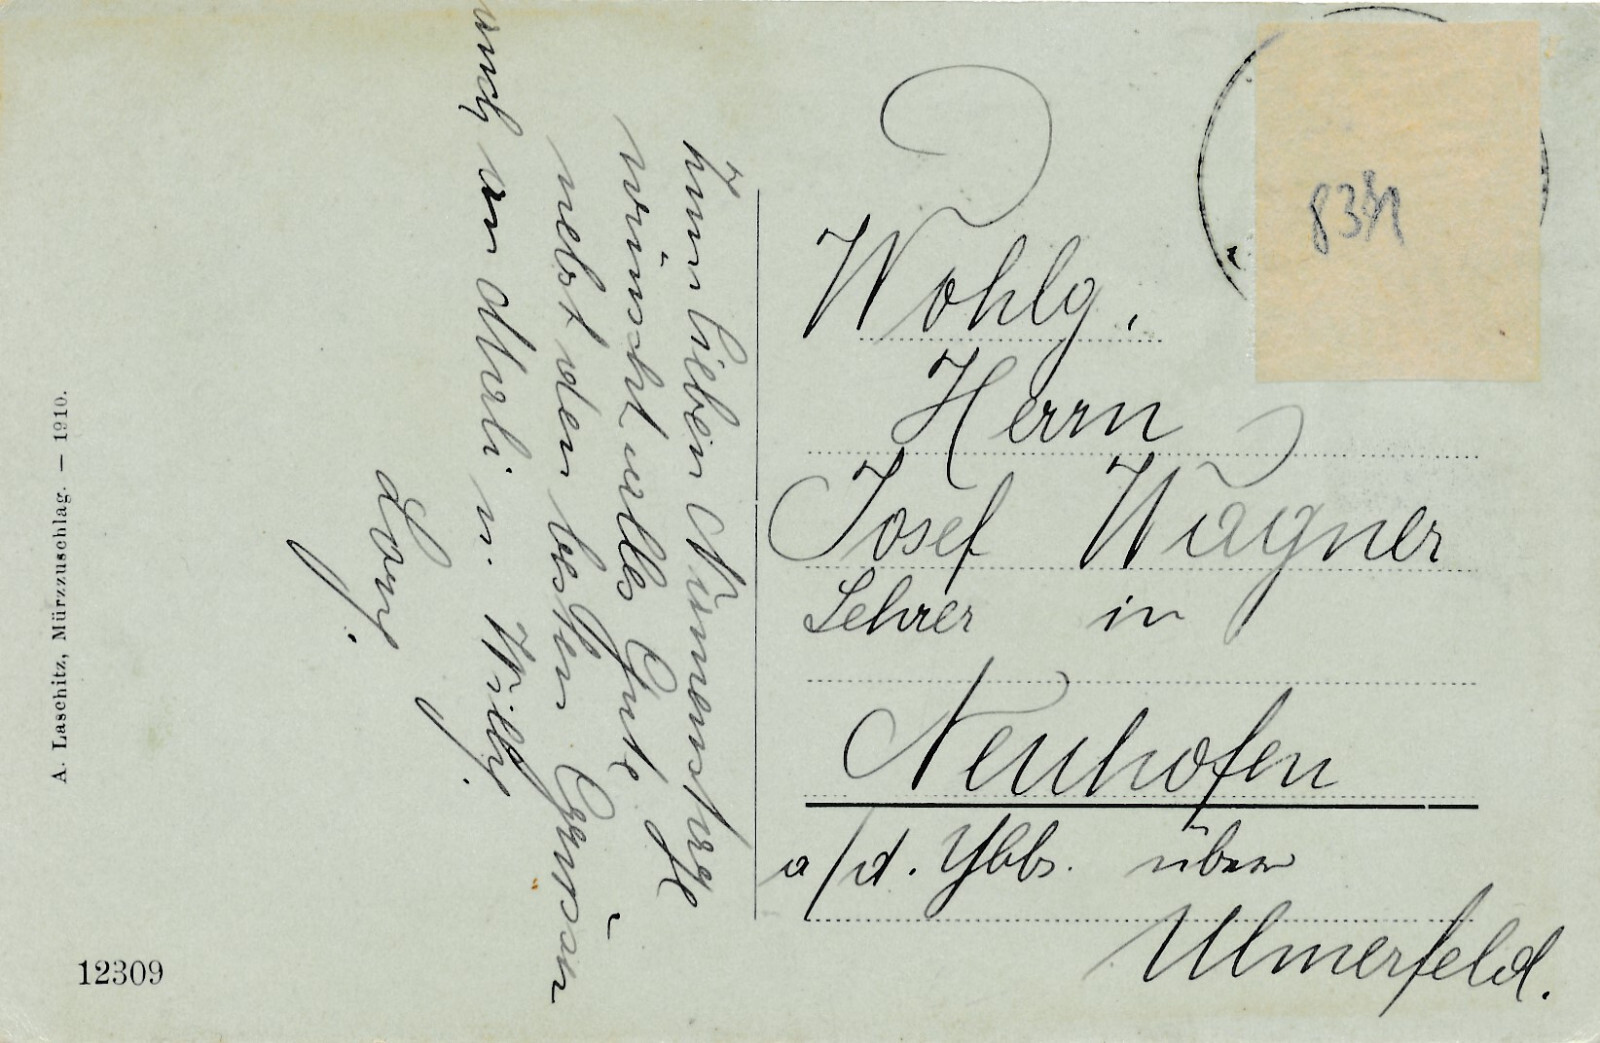 Zum lieben Namensfeste
wünscht alles Gute
nebst den besten Grüssen
auch an Mali u. Willy.
Wohlg.
Herrn
Josef Wagner
Lehrer in
Neuhofen
a/d. Ybbs. über
Ulmerfeld.
A. Laschitz, Mürzzuschlag. – 1910.
12309